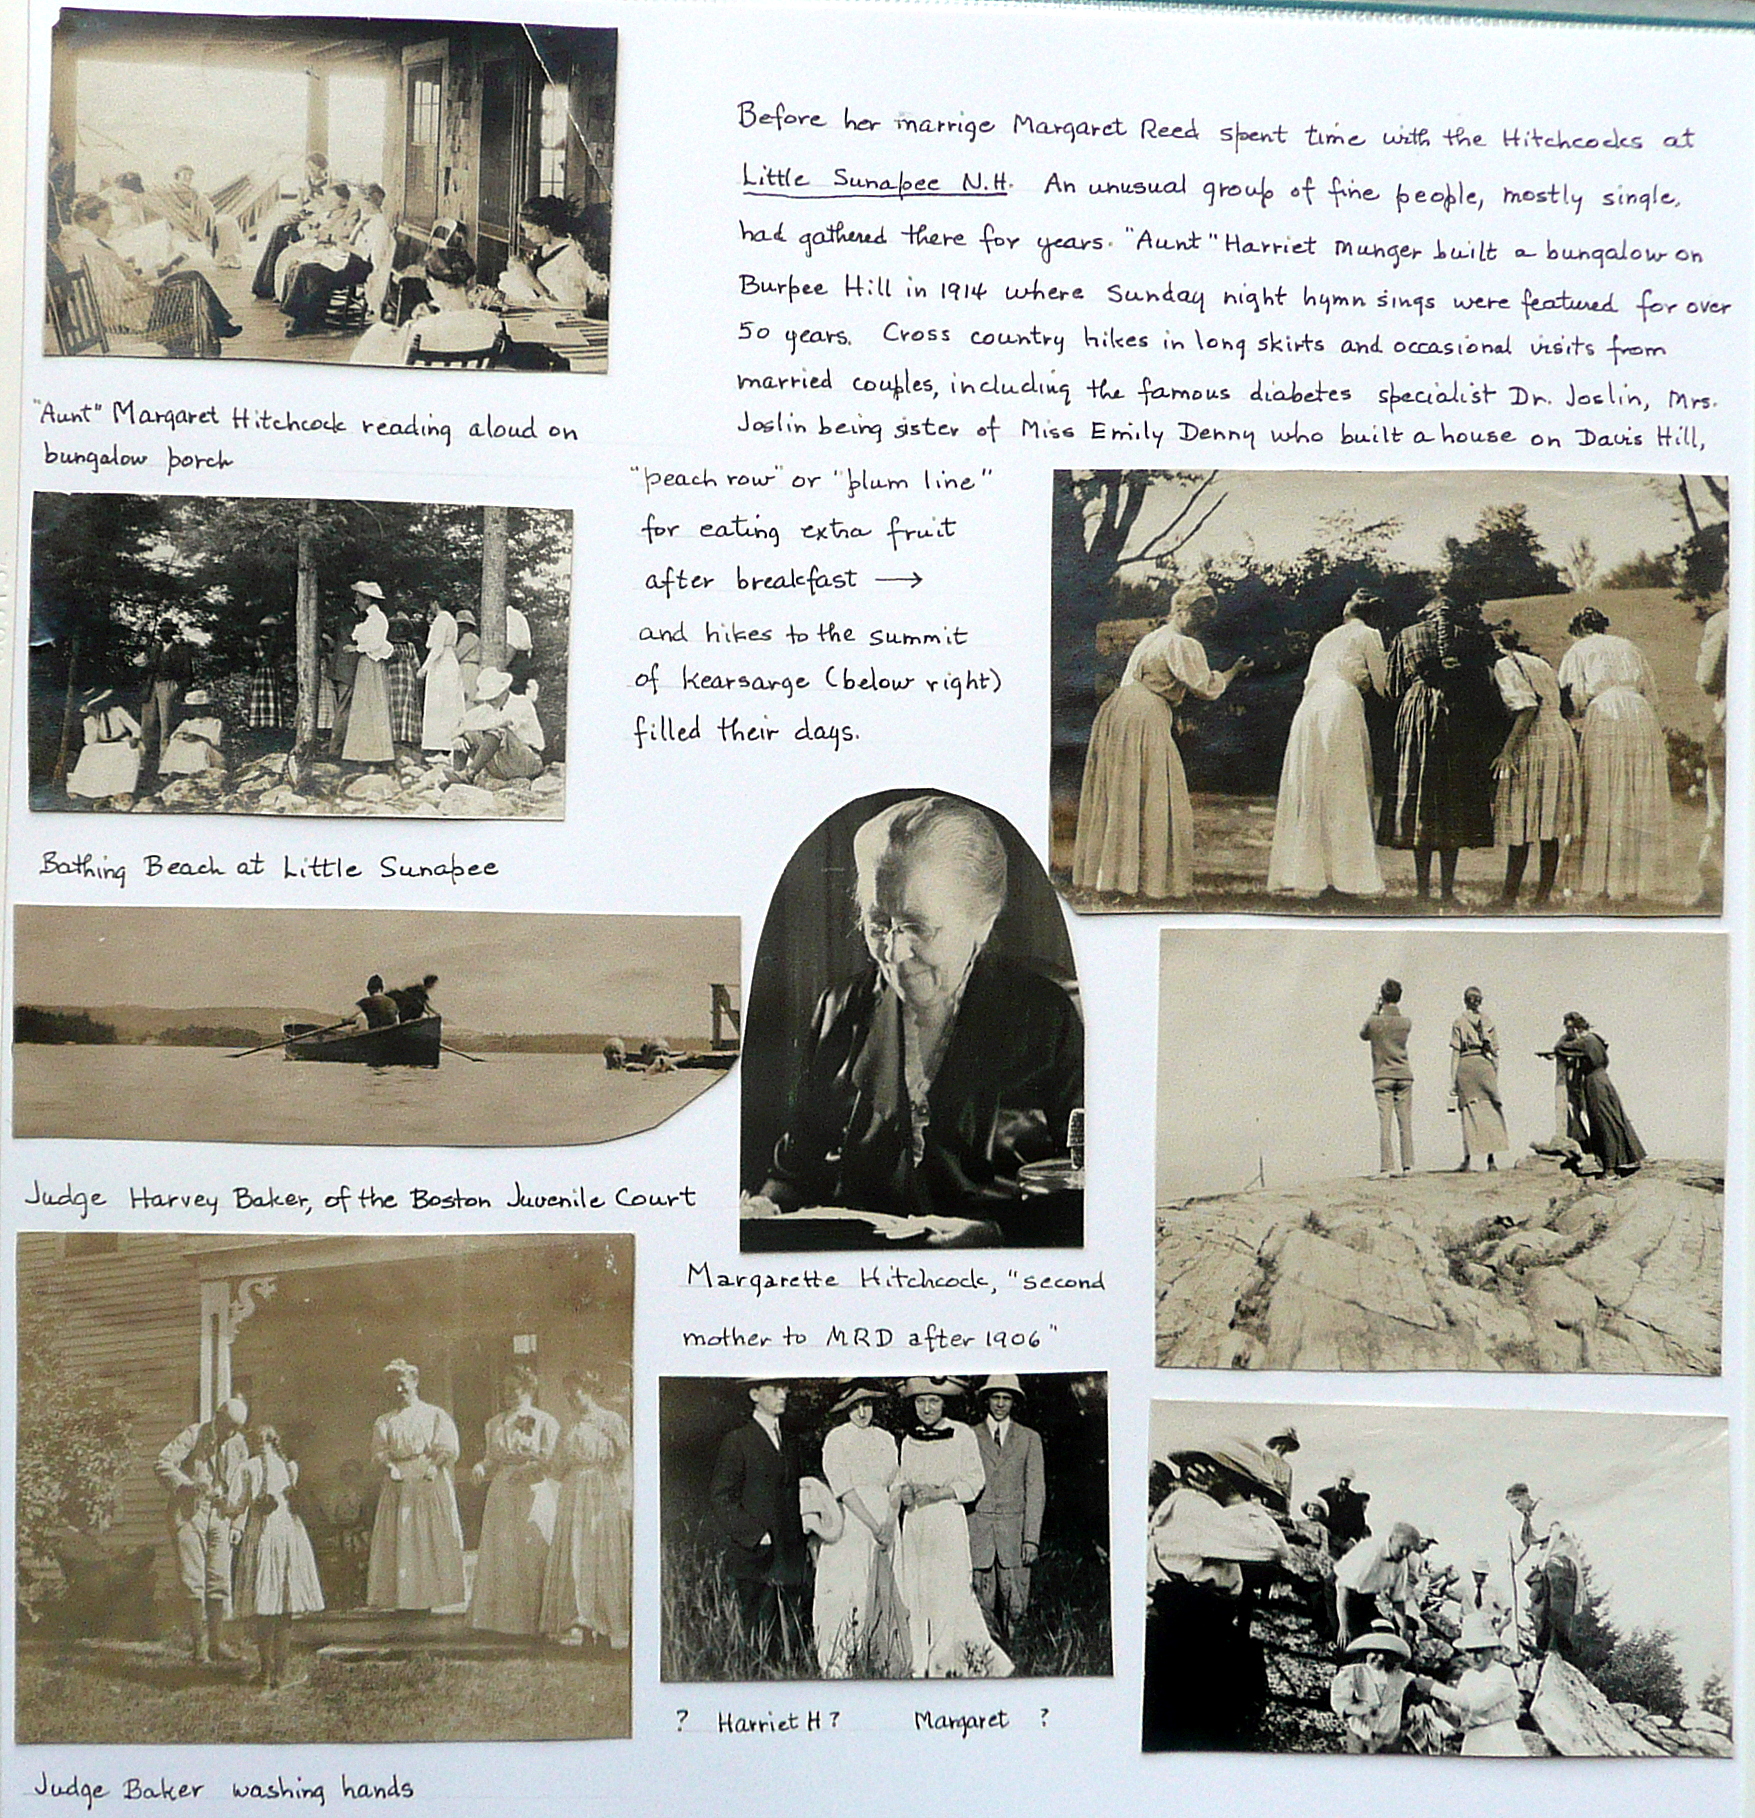 Before her marrige Margaret Reed spent time with the Hitchcocks at
Little Sunapee N.H. An unusual group of fine people, mostly single,
had gathered there for years. "Aunt" Harriet Munger built a bungalow on
Burpee Hill in 1914 where Sunday night hymn sings were featured for over
50 years. Cross country hikes in long skirts and occasional visits from
married couples, including the famous diabetes specialist Dr. Joslin, Mrs.
Joslin being sister of Miss Emily Denny who built a house on Davis Hill,
"peach row" or "plum line"
for eating extra fruit
after breakfast →
and hikes to the summit
of Kearsarge (below right)
filled their days.
"Aunt" Margaret Hitchcock reading aloud on
bungalow porch
Bathing Beach at Little Sunapee
Judge Harvey Baker, of the Boston Juvenile Court
Margarette Hitchcock, "second
mother to MRD after 1906"
? Harriet H? Margaret ?
Judge Baker washing hands